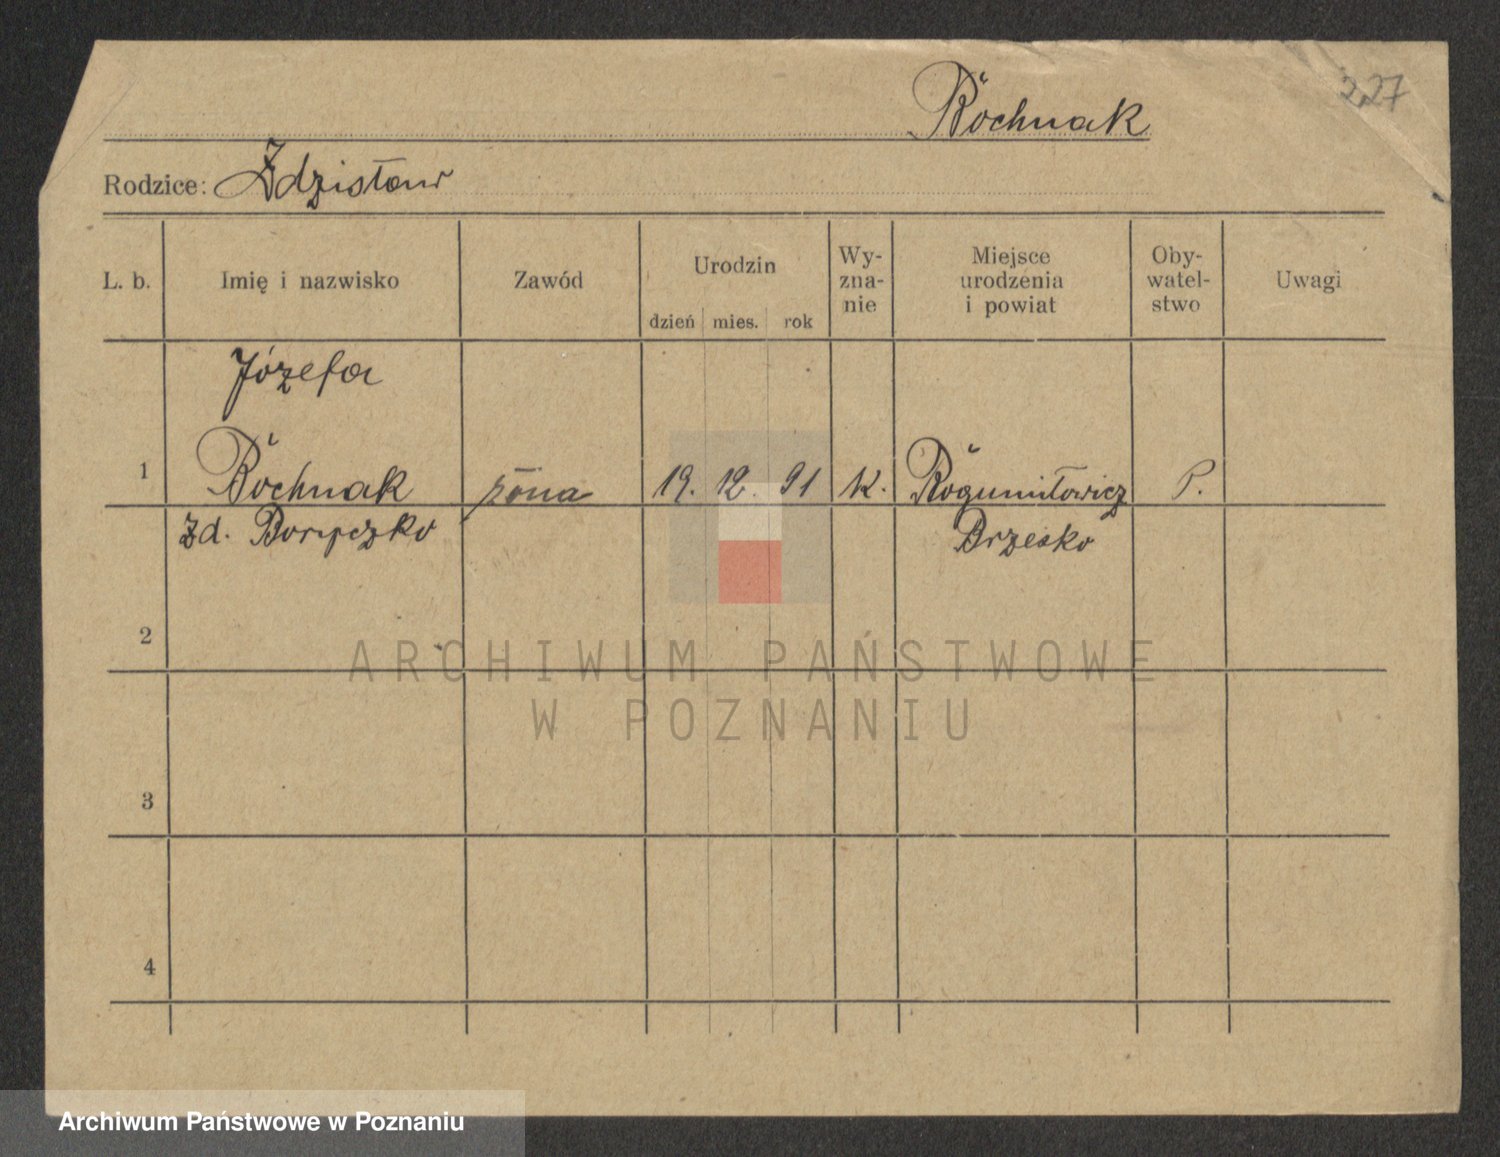 227
Bochnak
Rodzice: Zdzisław
L. b. Imię i nazwisko Zawód Urodzin dzień mies. rok Wy-zna-nie Miejsce urodzenia i powiat Oby-watel-stwo Uwagi
Józefa
1 Bochnak żona 19. 12. 91 K. Bogumiłowicz P.
zd. Boryczko Brzesko
2
3
4
ARCHIWUM PAŃSTWOWE
W POZNANIU
Archiwum Państwowe w Poznaniu